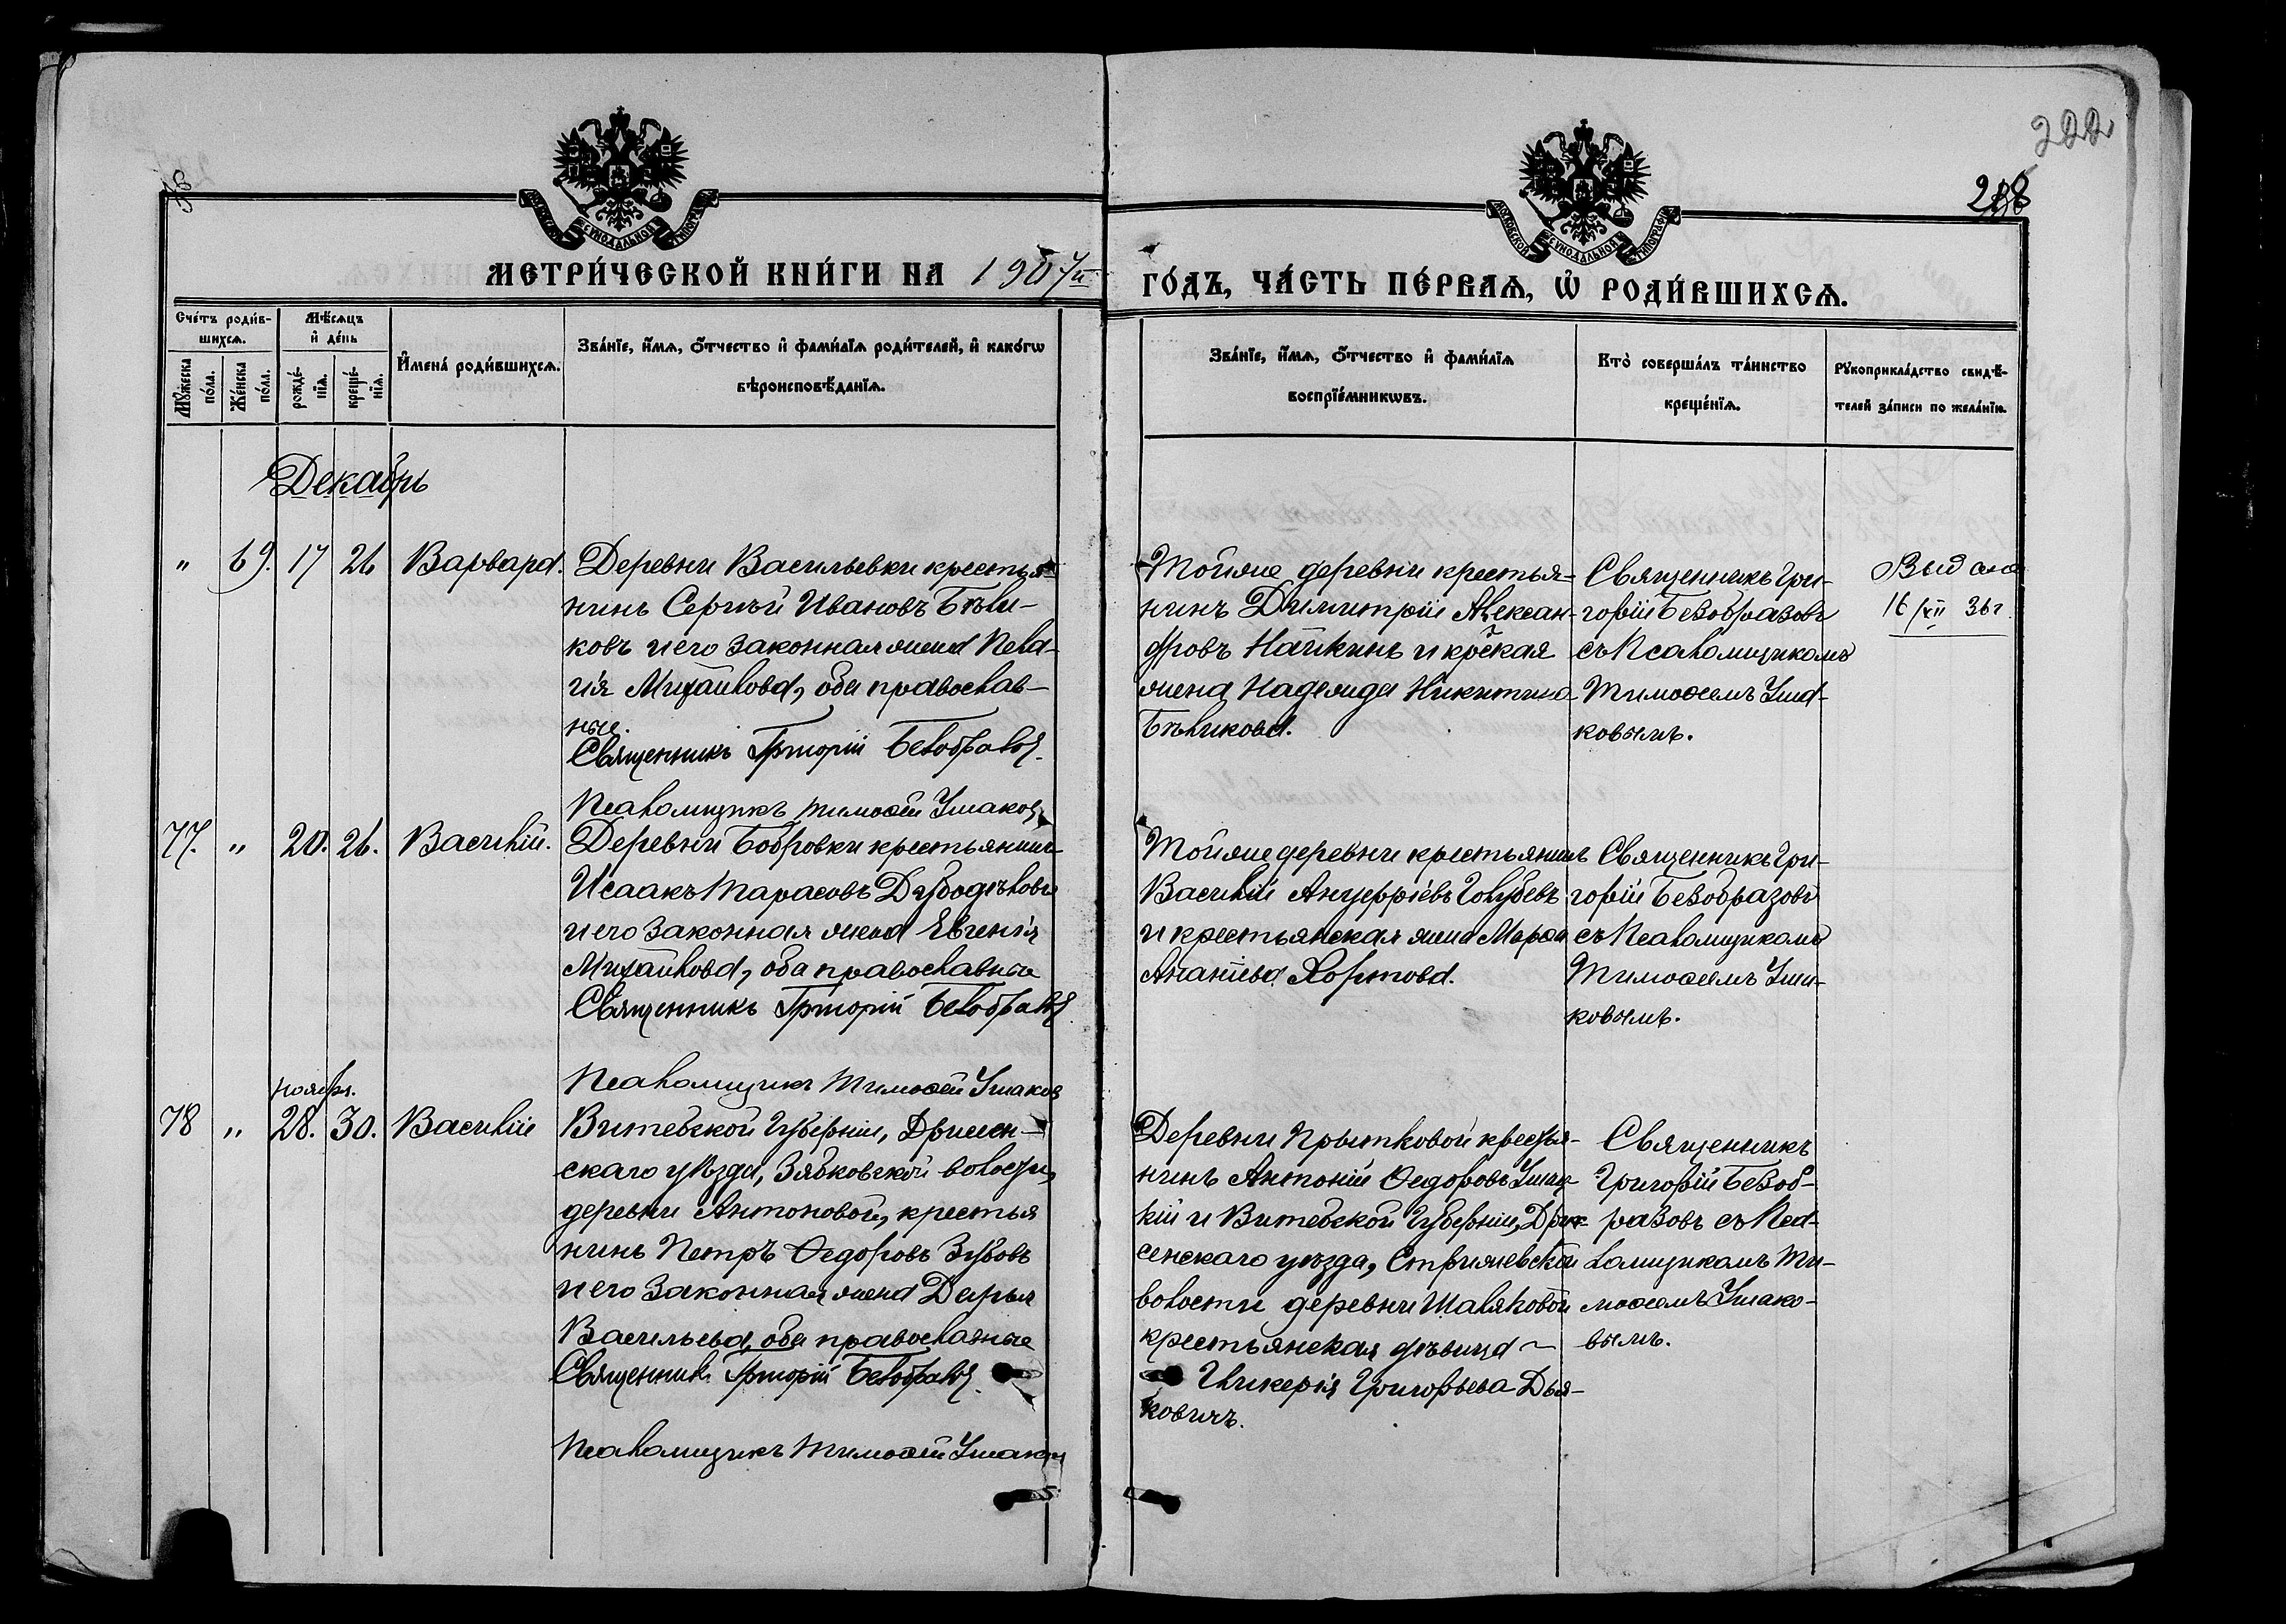 222
218
МОСКОВСКОЙ СѴНОДАЛЬНОЙ ТИПОГРАФІИ
МОСКОВСКОЙ СѴНОДАЛЬНОЙ ТИПОГРАФІИ
МЕТРИ́ЧЕСКОЙ КНИ́ГИ НА 1907й
ГО́ДЪ, ЧА́СТЬ ПЕ́РВАѦ, Ѡ҆ РОДИ́ВШИХСѦ.
Сче́тъ роди́в-
шихсѧ.
Мѹ́жеска по́ла.
Же́нска по́ла.
Мѣ́сѧцъ
и҆ де́нь
рожде́-
нїѧ.
креще́-
нїѧ.
И҆мена̀ роди́вшихсѧ.
Зва́нїе, и҆́мѧ, ѻ҆́тчество и҆ фами́лїѧ роди́телей, и҆ како́гѡ
вѣроисповѣ́данїѧ.
Зва́нїе, и҆́мѧ, ѻ҆́тчество и҆ фами́лїѧ
воспрїе́мникѡвъ.
Кто̀ соверша́лъ та́инство
креще́нїѧ.
Рѹкоприкла́дство свидѣ́-
телей за́писи по жела́нїю.
Декабрь
" 69. 17 26 Варвара.
Деревни Васильевки крестья-
нинъ Сергѣй Ивановъ Бѣли-
ковъ и его законная жена Пела-
гія Михайлова, оба православ-
ные.
Священникъ Григорій Безобразовъ.
Псаломщикъ Тимоѳей Ушаковъ
Тойже деревни крестья-
нинъ Димитрій Алексан-
дровъ Найкинъ и кр̃ская
жена Надежда Никитина
Бѣликова.
Священникъ Гри-
горій Безобразовъ
съ Псаломщикомъ
Тимоѳеемъ Уша-
ковымъ.
Выдано
16/XII 36г
77. " 20. 26. Василій.
Деревни Бобровки крестьянинъ
Исаакъ Тарасовъ Дубодѣловъ
и его законная жена Евгенія
Михайлова, оба православные
Священникъ Григорій Безобразовъ
Псаломщикъ Тимоѳей Ушаковъ
Тойже деревни крестьянинъ
Василій Голубевъ
и крестьянская жена Марѳа
Ананіева
Священникъ Гри-
горій Безобразовъ
съ Псаломщикомъ
Тимоѳеемъ Уша-
ковымъ.
ноябрь.
78 " 28. 30. Василій
Витебской Губерніи, Дриссен-
скаго уѣзда, Зябковской волости,
деревни Антоновой, крестья
нинъ Петръ Ѳедоровъ Зубовъ
и его законная жена Дарья
Васильева, оба православные
Священникъ Григорій Безобразовъ.
Псаломщикъ Тимоѳей Ушаковъ
Деревни крестья-
нинъ Антоній Ѳедоровъ
и Витебской Губерніи, Дрис-
сенскаго уѣзда, Стрижевской
волости деревни Шаляковой
крестьянская дѣвица
Гликерія Григорьева Дья-
ковичъ.
Священникъ
Григорій Безоб-
разовъ съ Пса-
ломщикомъ Ти-
моѳеемъ Ушако-
вымъ.